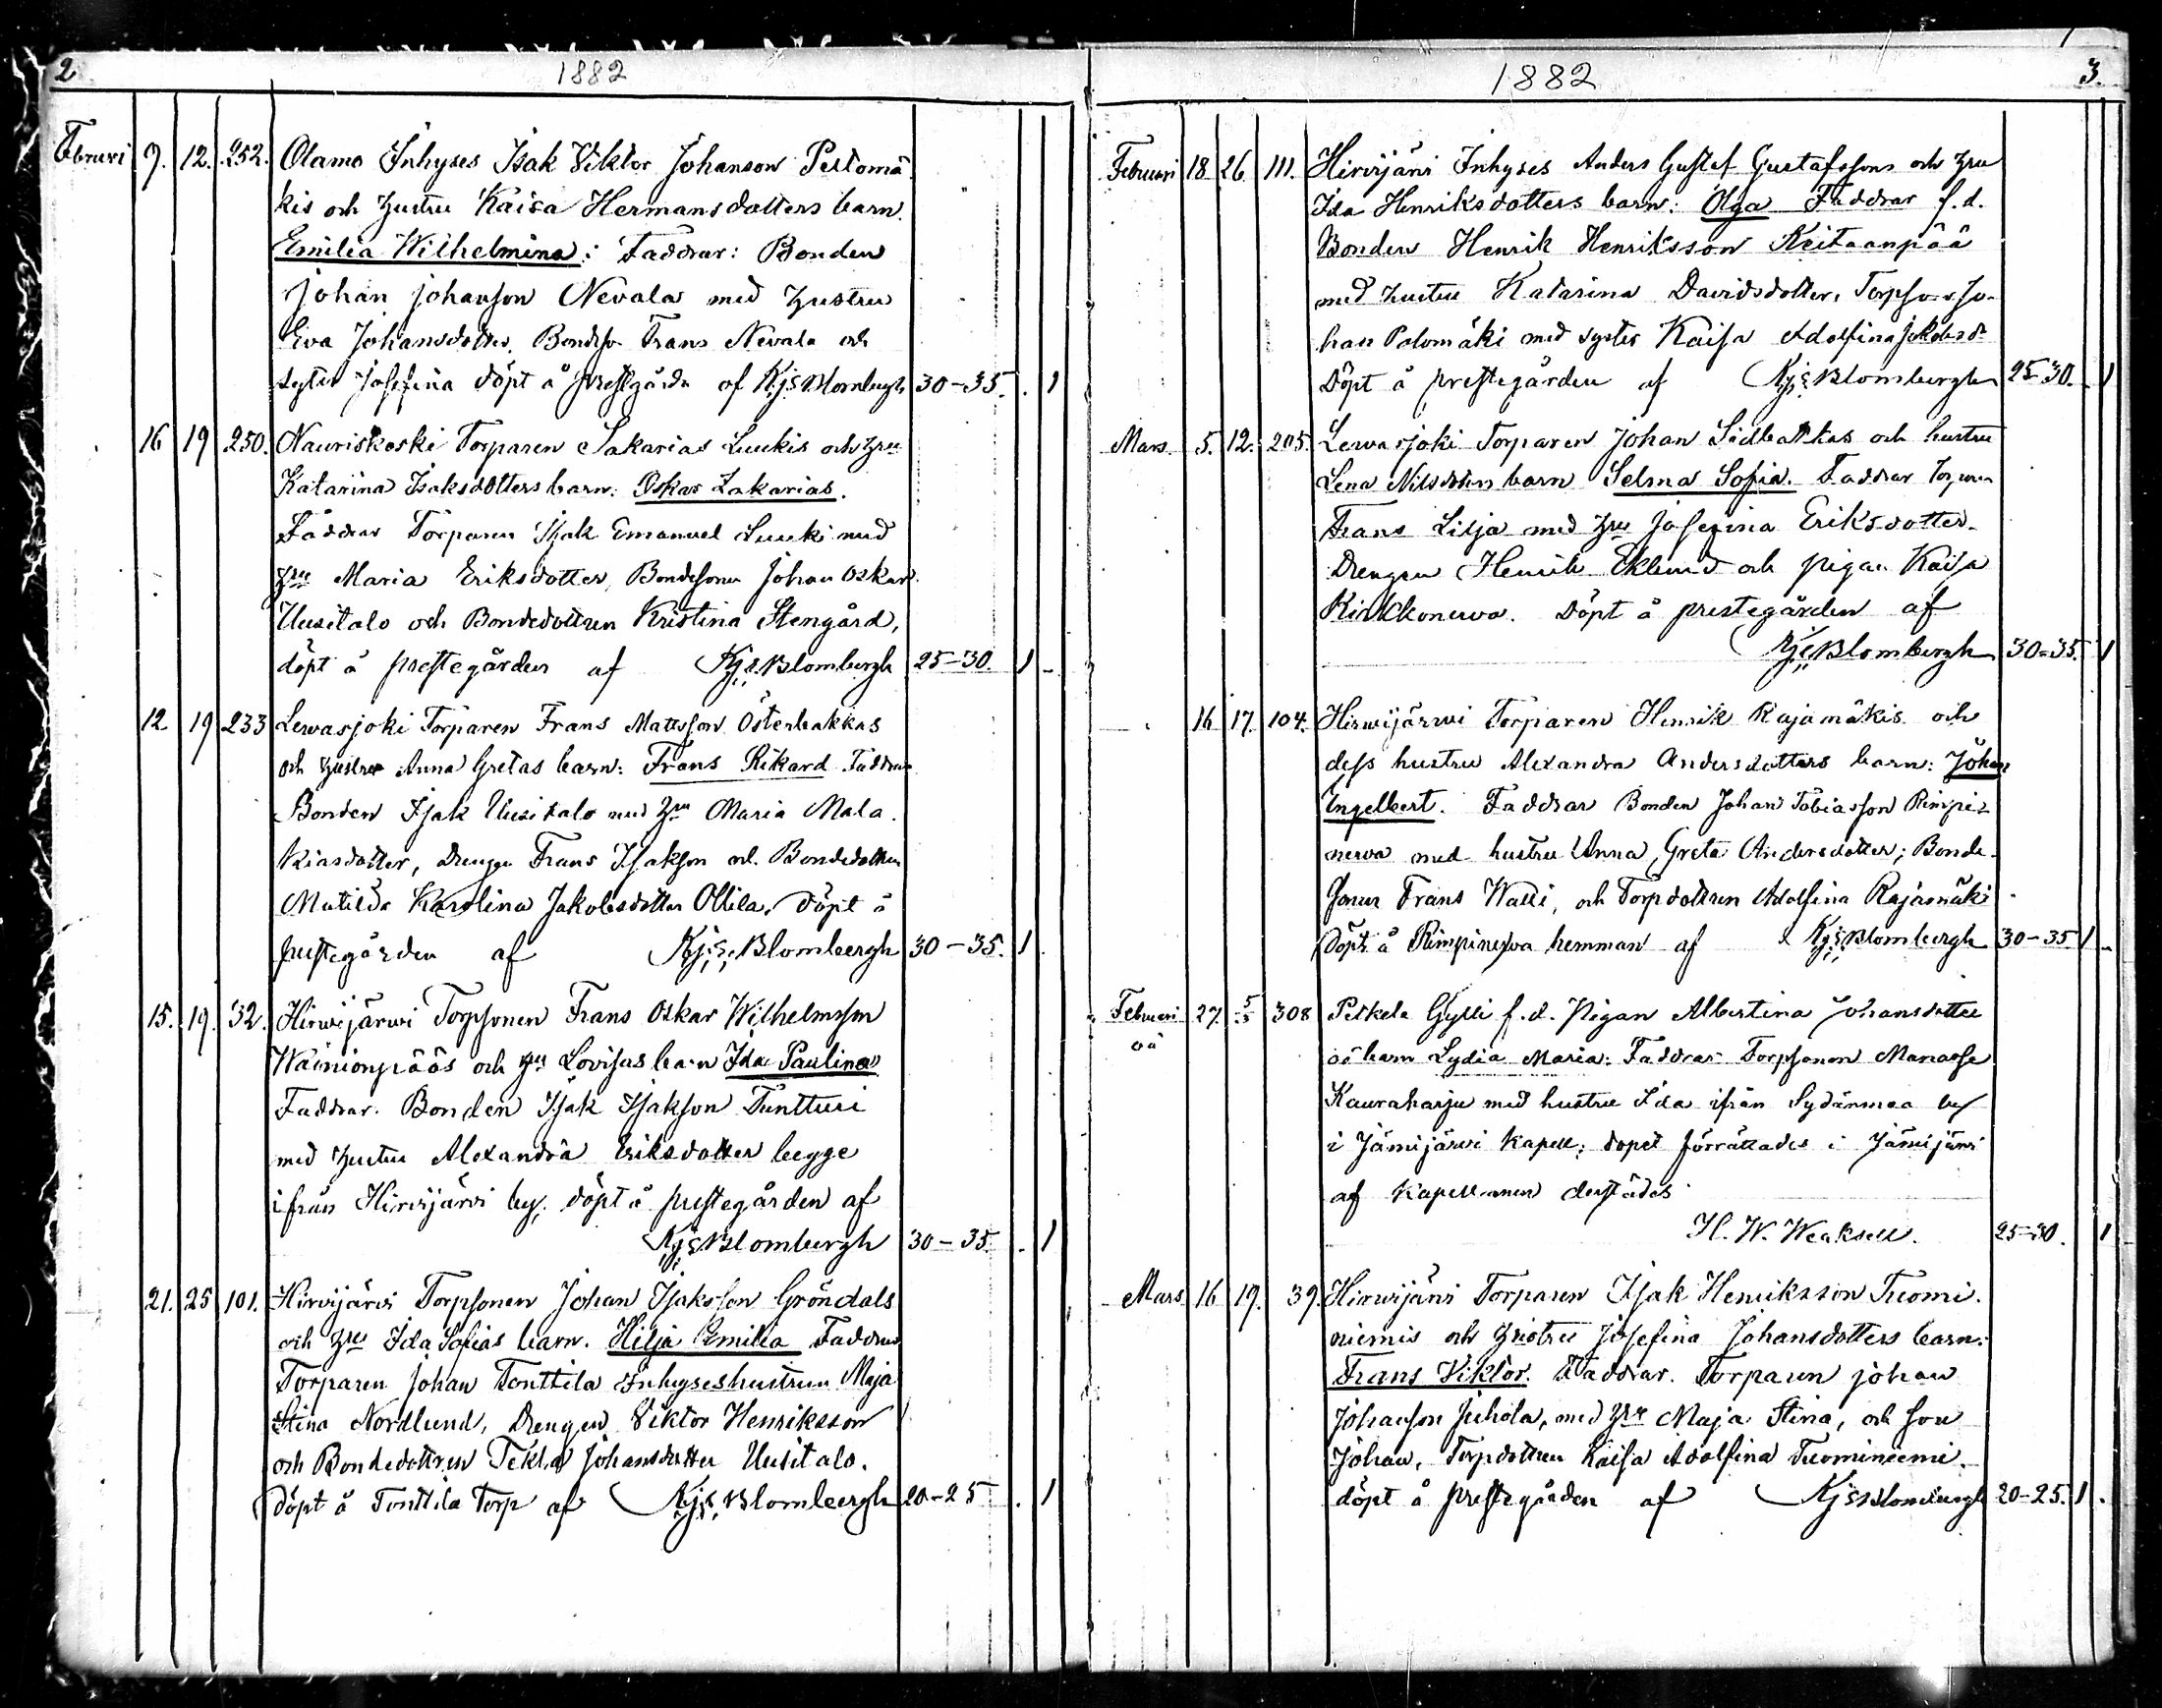 2 1882
Februari 9. 12. 252. Olamo Inhyses Isak Viktor Johanson Peltomä
kis och hustru Kaisa Hermansdotters barn.
Emilia Wilhelmina: Faddrar: Bonden
Johan Johanson Nevala med hustru
Eva Johansdotter, Bondeso Frans Nevala och
syster Josefina döpt å prestgårdn af Kj: S: Blombergh 30-35. 1
16 19 250. Nauriskoski Torparen Sakarias Luukis och hru
Katarina Isaksdotters barn: Oskar Zakarias.
Faddrar Torparen Isak Emanuel Luuki med
hru Maria Eriksdotter, Bondesonen Johan Oskar
Uusitalo och Bondedottren Kristina Stengård,
döpt å prestegården af Kj: S: Blombergh 25-30. 1
12 19 233 Lewasjoki Torparen Frans Mattsson Österbakkas
och hustru Anna Gretas barn: Frans Rikard Faddrar
Bonden Isak Uusitalo med hru Maria Mala
kiasdotter, Drengen Frans Isakson och Bondedottren
Matilda Karolina Jakobsdotter Ollila. Döpt å
prestegården af Kj: S: Blombergh 30-35. 1
15. 19. 32. Hirwijärwi Torpsonen Frans Oskar Wilhelmsson
Wainionpääs och hru Lovisas barn Ida Paulina
Faddrar. Bonden Isak Isakson Tuntturi
med hustru Alexandra Eriksdotter begge
ifrån Hirvijärvi by. döpt å prestegården af
Kj: S: Blombergh 30-35. 1
21. 25 101. Hirvijärvi Torpsonen Johan Isaksson Gröndals
och hru Ida Sofias barn. Hilja Emilia Faddrar
Torparen Johan Tonttila Inhyseshustrun Maja
Stina Nordlund, Drengen Viktor Henriksson
och Bondedottren Tekla Johansdotter Uusitalo.
döpt å Tonttila Torp af Kj: S: Blombergh 20-25 1
1882 3.
Februari 18 26 111. Hirvijärvi Inhyses Anders Gustaf Gustafssons och hru
Ida Henriksdotters barn: Olga Faddrar f.d.
Bonden Henrik Henriksson Keitaanpää
med hustru Katarina Davidsdotter, Torpson Jo-
han Palomäki med syster Kaisa Adolfina
Döpt å prestegården af Kj: S: Blombergh 25-30. 1
Mars. 5. 12. 205. Lewasjoki Torparen Johan Södbakkas och hustru
Lena Nilsdotters barn Selma Sofia. Faddrar Torparen
Frans Lilja med hru Josefina Eriksdotter.
Drengen Henrik Eklund och pigan Kaisa
Kirkkonerva. Döpt å prestegården af
Kj: S: Blombergh 30-35. 1
16. 17. 104. Hirwijärwi Torparen Henrik Rajamäkis och
dess hustru Alexandra Andersdotters barn: Johan
Engelbert. Faddrar Bonden Johan Tobiasson Rimpi-
nerva med hustru Anna Greta Andersdotter; Bonde-
sonen Frans Walli, och Torpdottren Adolfina Rajamäki
Döpt å Rimpinerva hemman af Kj: S: Blombergh 30-35 1
Februari oä 27. 5/3 308 Petkele Gylli f.d. Pigan Albertina Johansdotter
oä barn Lydia Maria. Faddrar Torpsonen Manasse
Kauraharju med hustru Ida ifrån Sydänmaa by
i Jämijärvi Kapell; dopet förrättades i Jämijärvi
af Kapellanen derstädes
H. W. 25-30. 1
Mars 16 19. 39. Hirwijärvi Torparen Isak Henriksson Tuomi-
niemis och hustru Josefina Johansdotters barn:
Frans Viktor. Faddrar. Torparen Johan
Johanson Juhola, med hru Maja Stina, och son
Johan, Torpdottren Kaisa Adolfina Tuominiemi.
döpt å prestegården af Kj: S: Blombergh 20-25. 1